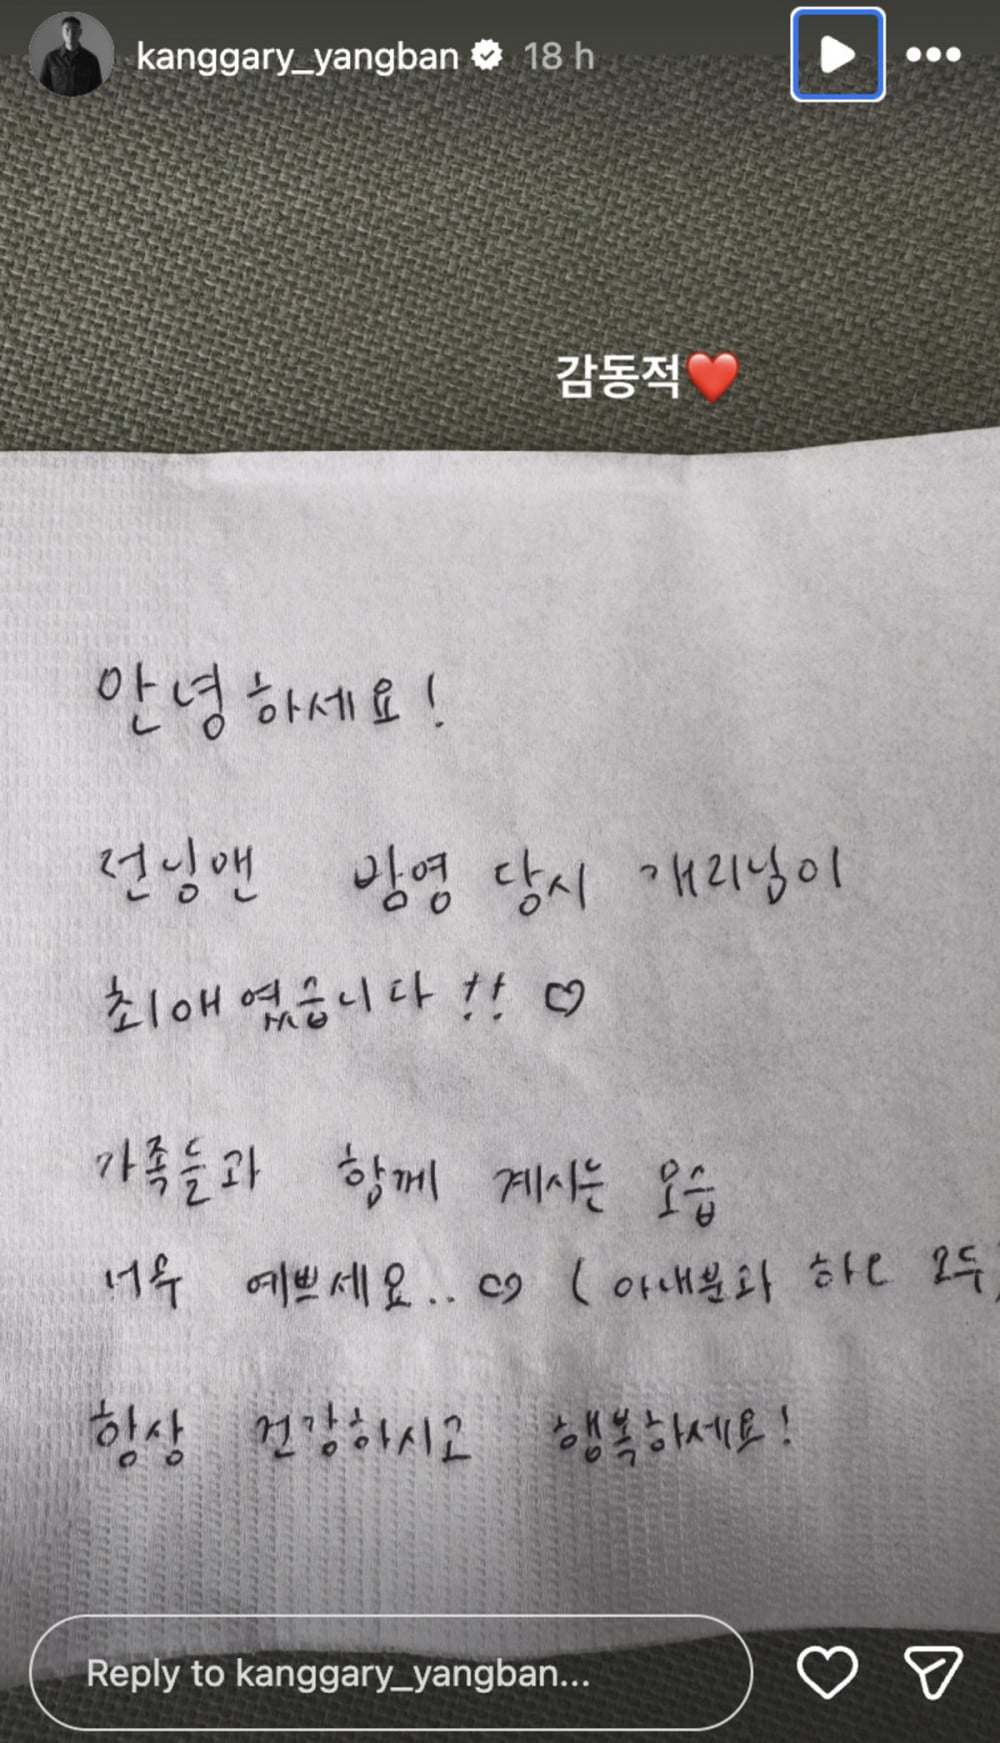 kanggary_yangban 18 h
감동적❤️
안녕하세요!
런닝맨 방영 당시 개리님이
최애였습니다!! ♡
가족들과 함께 계시는 모습
너무 예쁘세요.. ♡ (아내분과 하오 모두)
항상 건강하시고 행복하세요!
Reply to kanggary_yangban...